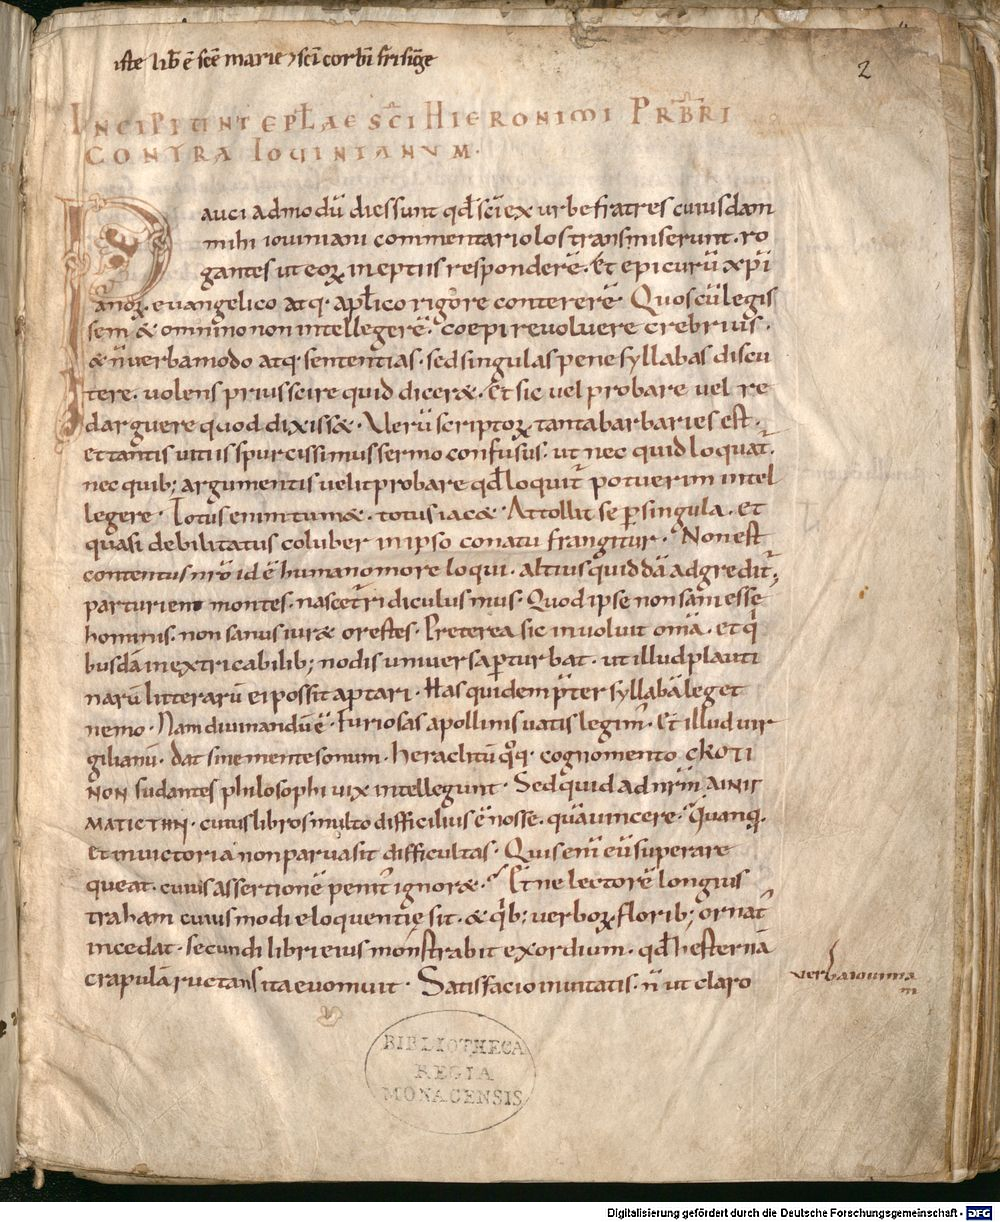 iste lib̄ ē sc̄e marie ⁊ sc̄i corbī frisīge
2
INCIPIUNT EPL̄AE SC̄I HIERONIMI PRB̄RI
CONTRA IOVINIANVM.
Pauci admodū dies sunt qd̄ sc̄i ex urbe fratres cuiusdam
mihi iouiniani commentariolos transmiserunt. ro
gantes ut eoꝝ ineptiis responderē. Et epicurū xp̄i
anoꝝ. euangelico atq; apl̄ico rigore contererē. Quos cū legis
sem & omnino non intellegerē. coepi reuoluere crebrius.
& n̄ uerba modo atq; sententias. sed singulas pene syllabas discu
tere. uolens prius scire quid dicer&. Et sic uel probare uel re
darguere quod dixiss&. Uerū scriptoꝝ tanta barbaries est.
et tantis uitiis spurcissimus sermo confusus. ut nec quid loquat̄.
nec quib; argumentis uelit probare qd̄ loquit̄ potuerim intel
legere. Totus enim tum&. totus iac&. Attollit se ꝑ singula. et
quasi debilitatus coluber in ipso conatu frangitur. Non est
contentus nr̄o id ē humano more loqui. altius quiddā adgredit̄.
parturient montes. nascet̄ ridiculus mus. Quod ipse non sani esse
hominis. non sanus iur& orestes. Preterea sic inuoluit om̄a. et q̇
busdā inextricabilib; nodis uniuersa ꝑturbat. ut illud plauti
narū litterarū ei possit aptari. Has quidem p̄ter syllabā leget
nemo. Nam diuinandū ē. Furiosas apollinis uatis legim̄. Et illud uir
gilianū. dat sine mente sonum. heraclitū q̊q; cognomento CKOTI
NON sudantes philosophi uix intellegunt. Sed quid ad nr̄m AINIT
MATICTHN. cuius libros multo difficilius ē nosse. quā uincere. Quanq̄.
et in uictoria non parua sit difficultas. Quis enī eū superare
queat. cuius assertionē penit̄ ignor&. Et ne lectorē longius
traham cuiusmodi eloquentię sit. & q̇b; uerboꝝ florib; ornat̄
incedat. secundi libri eius monstrabit exordium. qd̄ hesternā
crapulā ructans ita euomuit. Satisfacio inuitatis. n̄ ut claro
uerba iouinia
ni
BIBLIOTHECA
REGIA
MONACENSIS
Digitalisierung gefördert durch die Deutsche Forschungsgemeinschaft - DFG